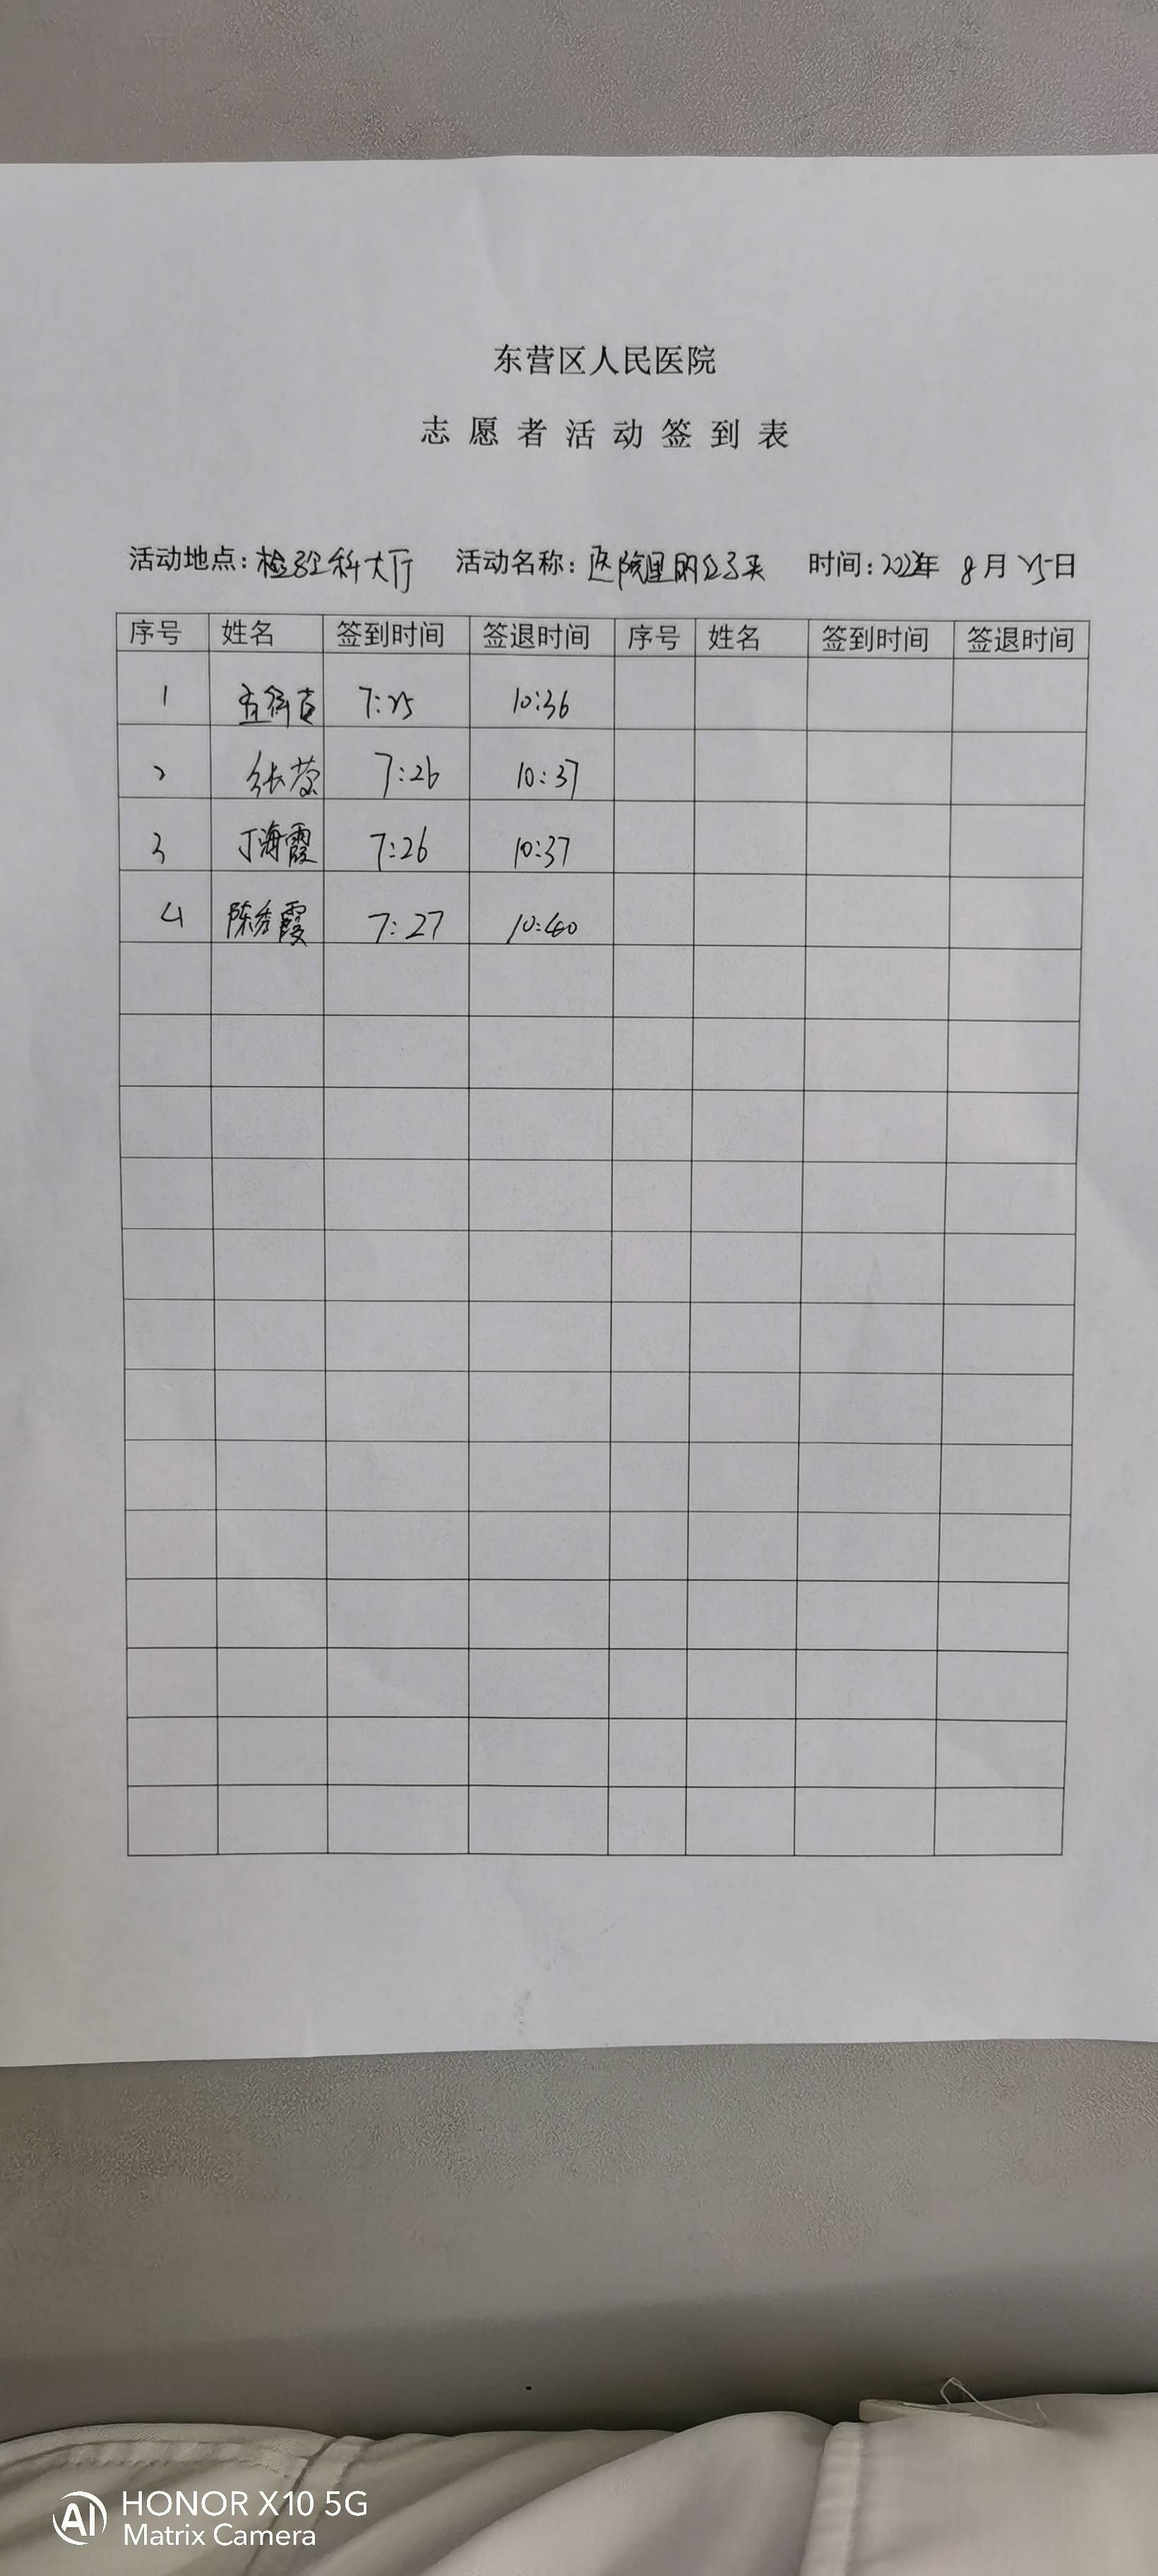 东营区人民医院
志愿者活动签到表
活动地点：检验科大厅 活动名称：医院里的公 时间：2022年 8月25日
序号 姓名 签到时间 签退时间 序号 姓名 签到时间 签退时间
1 7:25 10:36
2 张莹 7:26 10:37
3 丁海霞 7:26 10:37
4 陈秀霞 7:27 10:40
AI HONOR X10 5G
Matrix Camera